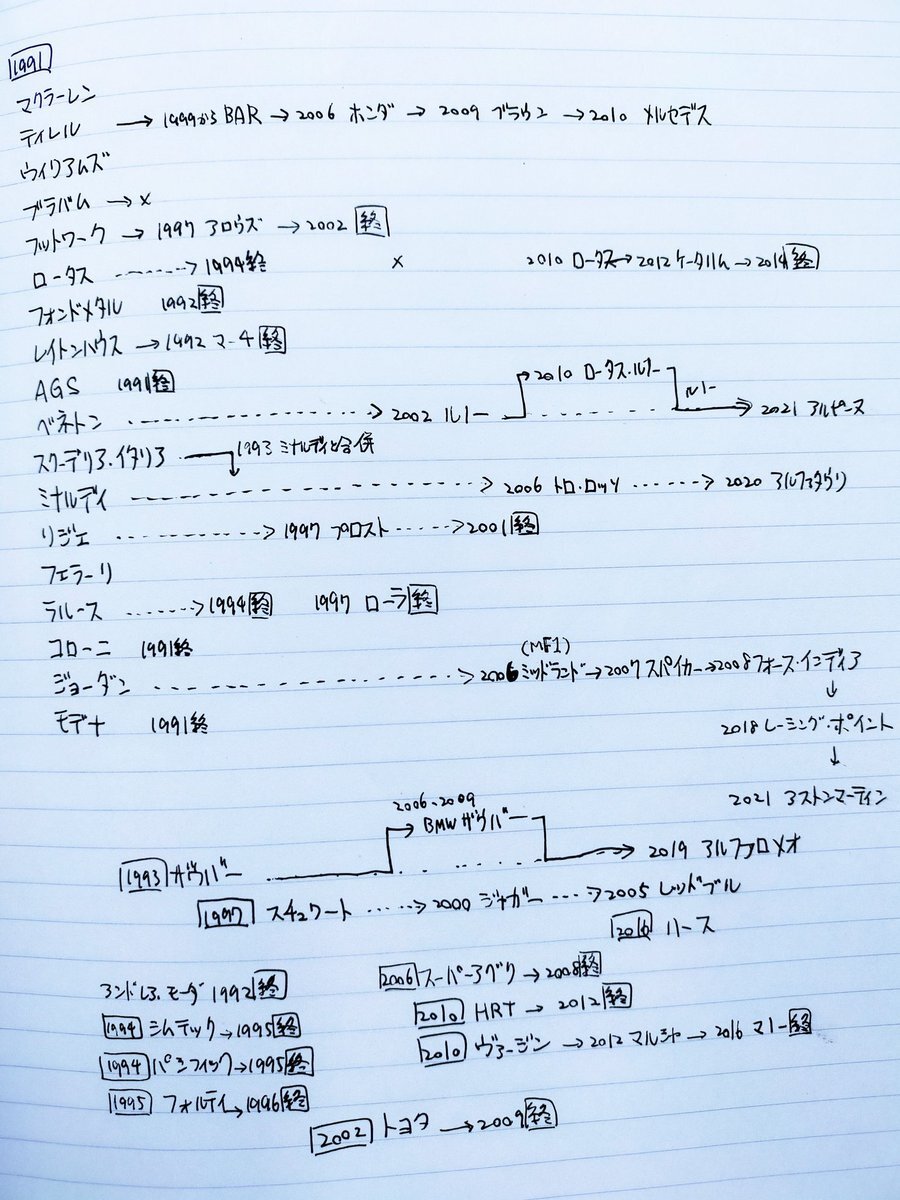 1991
マクラーレン
ティレル → 1999から BAR → 2006 ホンダ → 2009 ブラウン → 2010 メルセデス
ウイリアムズ
ブラバム → ×
フットワーク → 1997 アロウズ → 2002 終
ロータス ‥‥‥> 1994終 × 2010 ロータス → 2012 ケータハム → 2014 終
フォンドメタル 1992 終
レイトンハウス → 1992 マーチ 終
AGS 1991 終
2010 ロータス・ルノー
ベネトン ‥‥‥> 2002 ルノー ルノー → 2021 アルピーヌ
スクーデリア・イタリア 1993 ミナルディと合併
ミナルディ ‥‥‥> 2006 トロ・ロッソ ‥‥‥> 2020 アルファタウリ
リジェ ‥‥‥> 1997 プロスト ‥‥‥> 2001 終
フェラーリ
ラルース ‥‥‥> 1994 終 1997 ローラ 終
コローニ 1991終
(MF1)
ジョーダン ‥‥‥> 2006 ミッドランド → 2007 スパイカー → 2008 フォース・インディア
↓
モデナ 1991終 2018 レーシング・ポイント
↓
2021 アストンマーティン
2006-2009
BMW ザウバー
1993 ザウバー → 2019 アルファロメオ
1997 スチュワート ‥‥‥> 2000 ジャガー ‥‥> 2005 レッドブル
2016 ハース
アンドレア・モーダ 1992 終 2006 スーパーアグリ → 2008 終
1994 シムテック → 1995 終 2010 HRT → 2012 終
1994 パシフィック → 1995 終 2010 ヴァージン → 2012 マルシャ → 2016 マノー 終
1995 フォルティ → 1996 終
2002 トヨタ → 2009 終